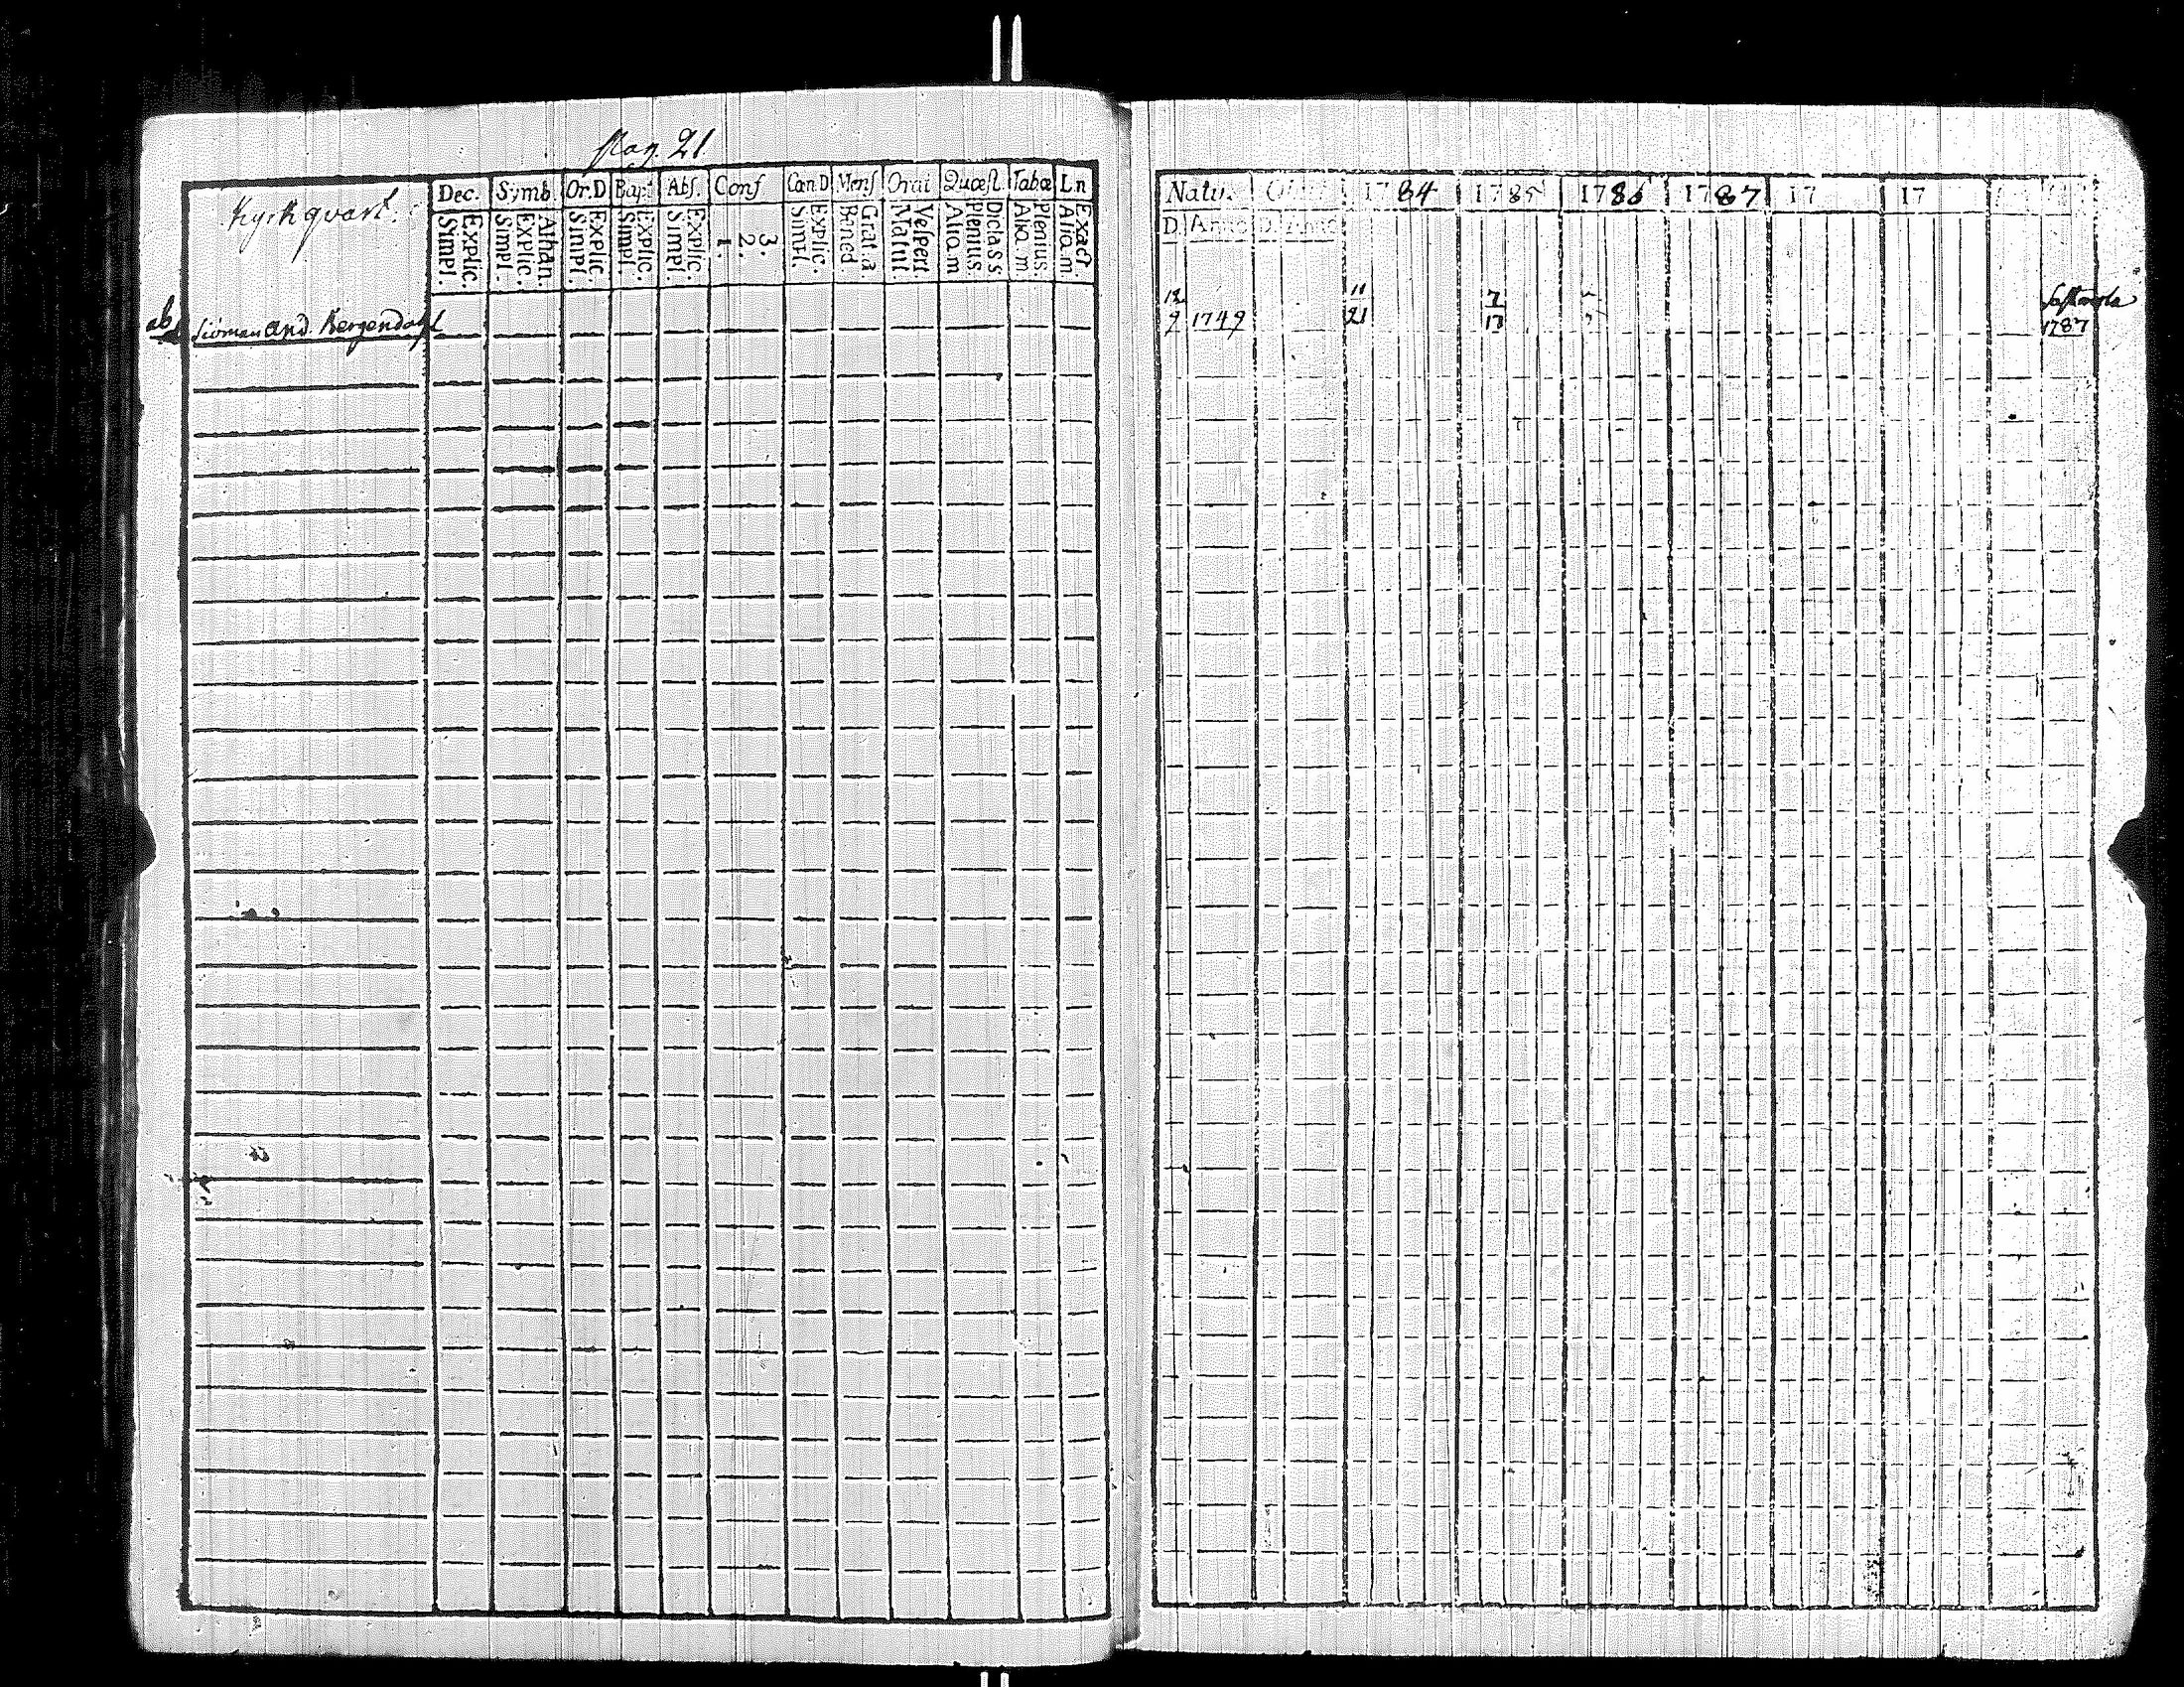 Pag. 21
Kyrkqvart.
Dec. Symb. Or.D Bapt Abs. Conf Can.D Mens Orat Quæst. Tabœ Ln
Simpl. Explic. Simpl. Explic. Athan. Simpl. Explic. Simpl. Explic. Simpl. Explic. 1. 2. 3. Simpl. Explic. Bened. Grat.a Matut Vespert Alio.m Plenius. Dic.lass. Alio.m. Plenius. Alio.m. Exact.
ab And. Bergendahl
Natus. Obiit 1784 1785 1786 1787 17 17
D. Anno D. Anno
12 11 7
9 1749 21 17
1787